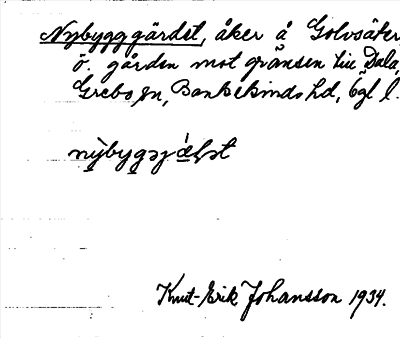 Nybygggärdet, åker å Golvsäter,
ö. gården mot gränsen till Dala,
Grebo sn, Bankekinds hd, Ögl l.
nỳbygg
Knut-Erik Johansson 1934.